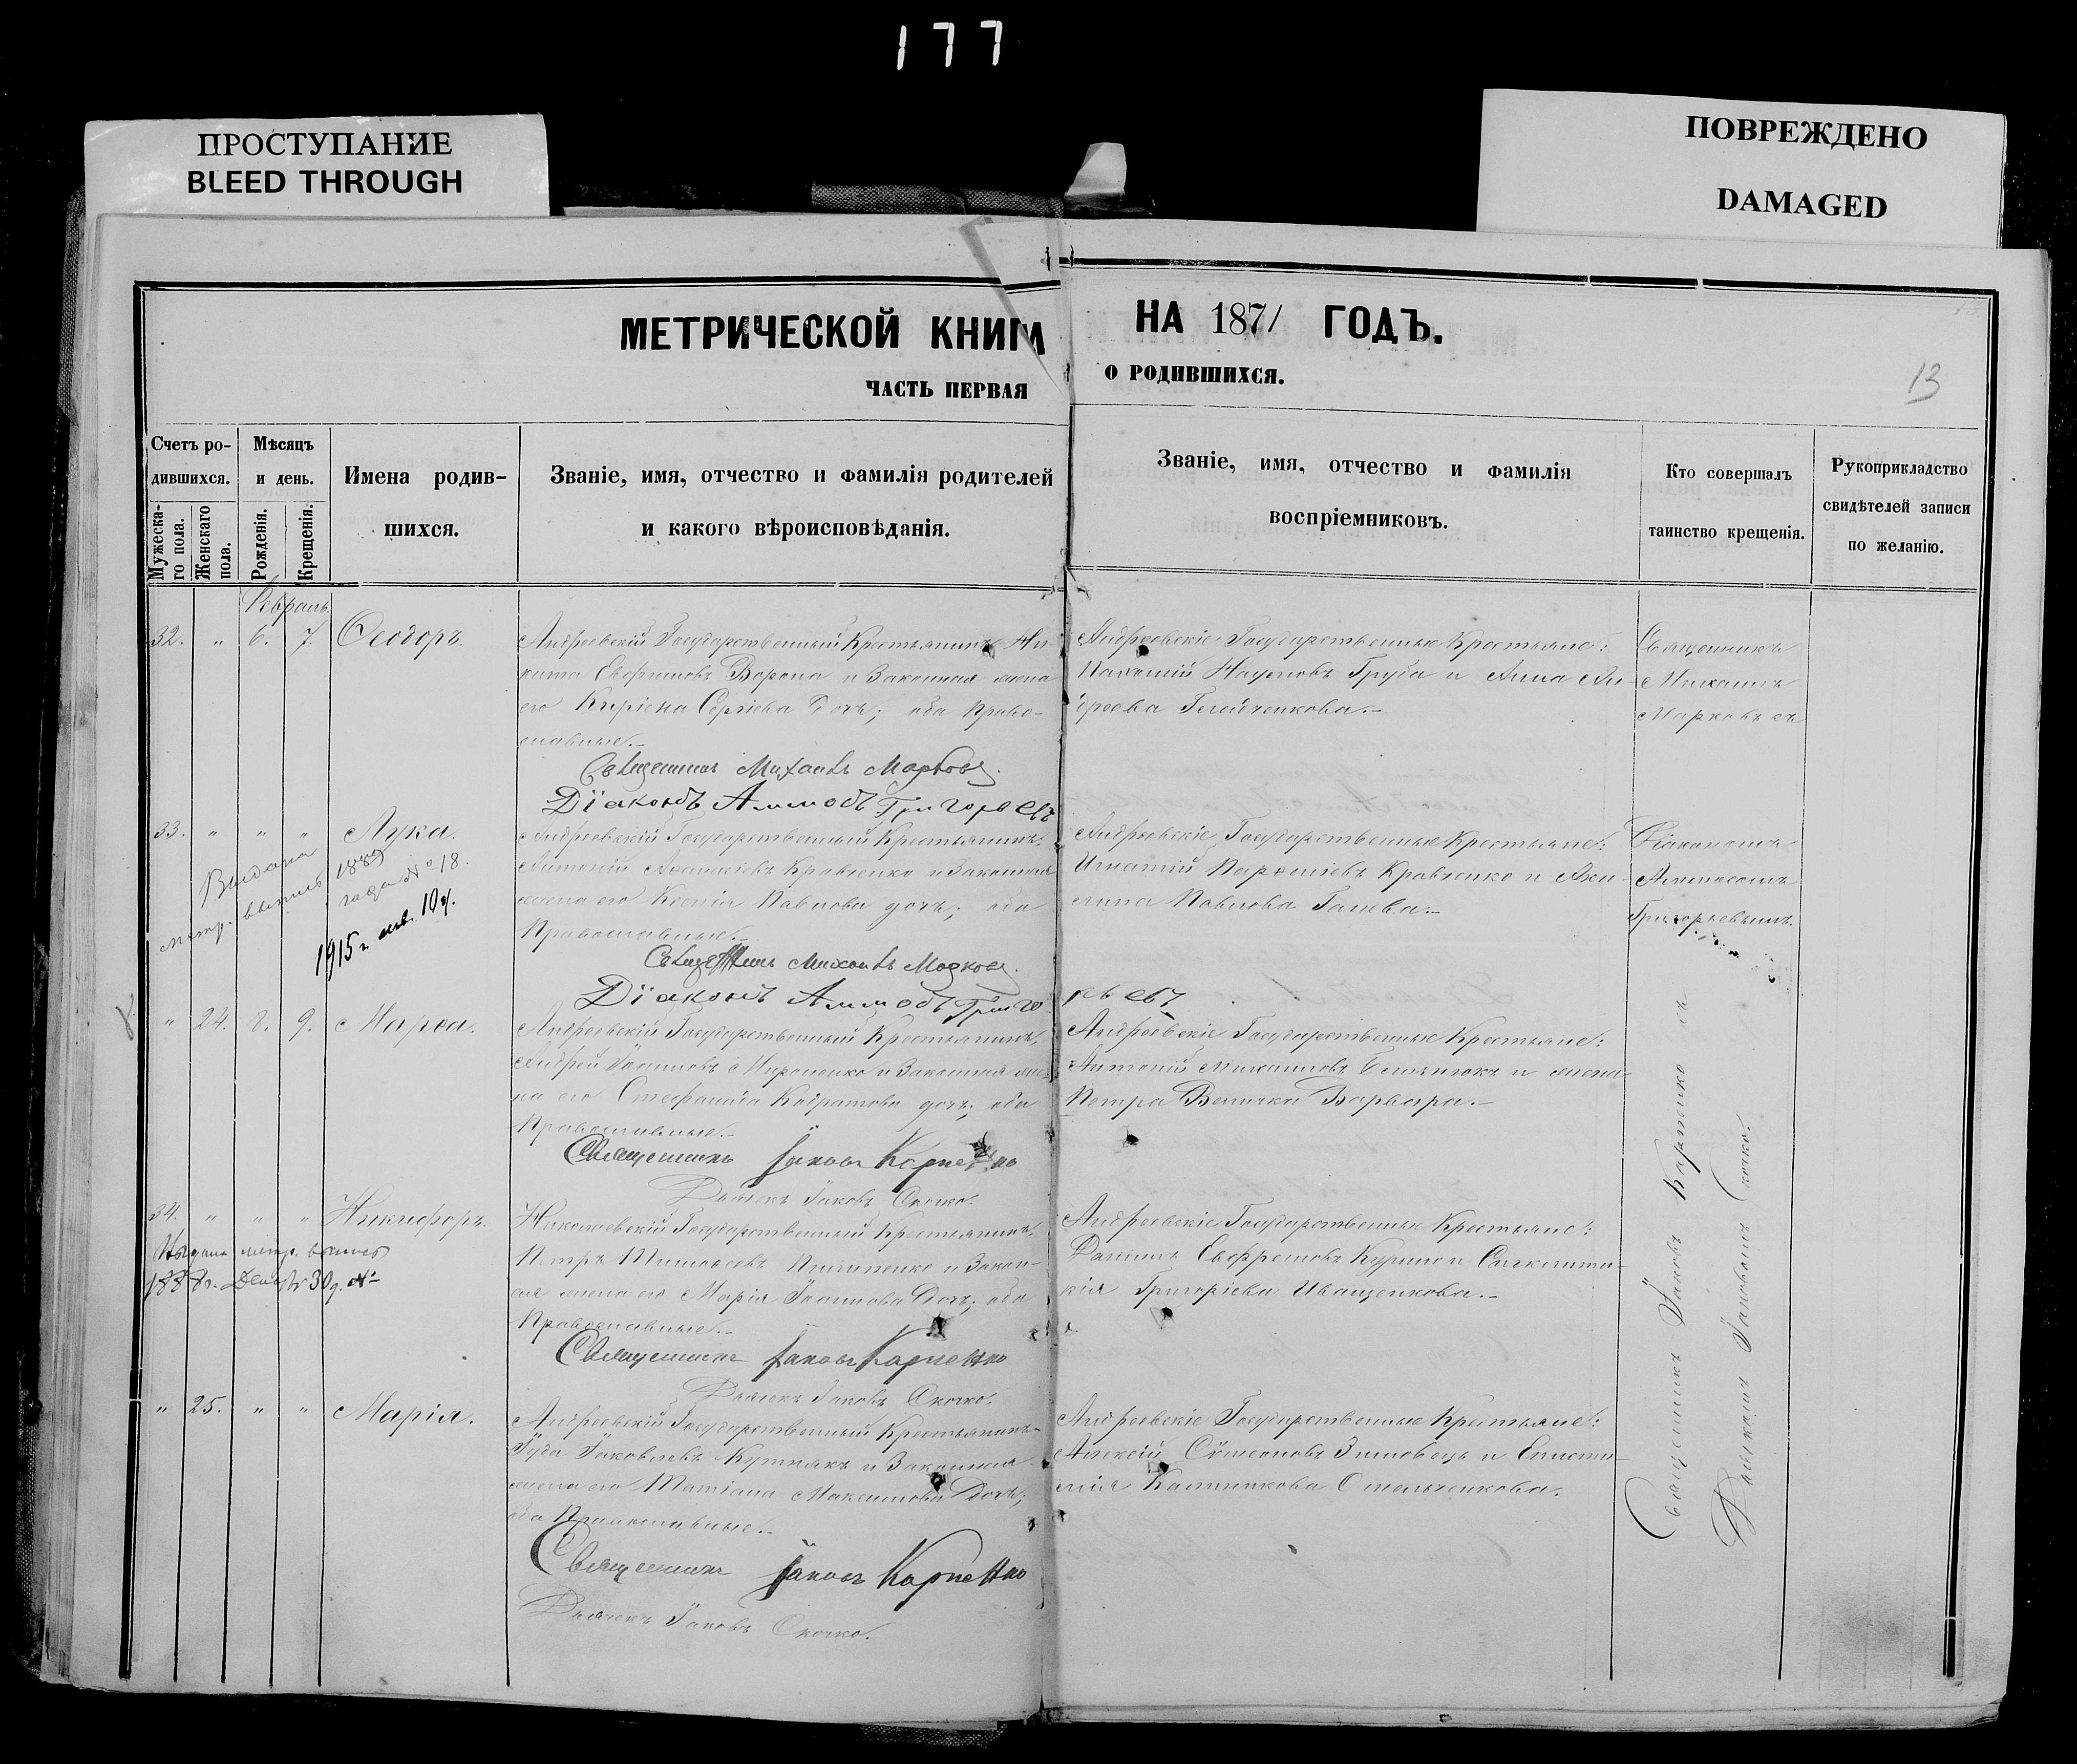 177
ПРОСТУПАНИЕ
BLEED THROUGH
ПОВРЕЖДЕНО
DAMAGED
МЕТРИЧЕСКОЙ КНИГИ НА 1871 ГОДЪ.
ЧАСТЬ ПЕРВАЯ О РОДИВШИХСЯ.
13
Счетъ ро-
дившихся.
Мужеска-
го пола.
Женскаго
пола.
Мѣсяцъ
и день.
Рожденія.
Крещенія.
Имена родив-
шихся.
Званіе, имя, отчество и фамилія родителей
и какого вѣроисповѣданія.
Званіе, имя, отчество и фамилія
воспріемниковъ.
Кто совершалъ
таинство крещенія.
Рукоприкладство
свидѣтелей записи
по желанію.
Февраль
32. " 6. 7. Ѳеодоръ.
Андреевскій Государственный Крестьянинъ Ни-
кита Евфимовъ Ворона и Законная жена
его Киріена Сергіева Дочь; оба Право-
славные.-
Священникъ Михаилъ Марковъ.
Діаконъ Аммосъ Григорьевъ
Андреевскіе Государственные Крестьяне:
Наумовъ Груба и Анна Ан-
дреева
Священникъ
Михаилъ
Марковъ съ
33. " " " Лука.
Выдана
метр. выпись 1889
года № 18.
1915 г. янв. 10 д.
Андреевскій Государственный Крестьянинъ
Антоній Кравченко и Законная
жена его Ксенія Павлова дочь; оба
Православные.-
Священникъ Михаилъ Марковъ.
Діаконъ Аммосъ Григорьевъ
Андреевскіе Государственные Крестьяне:
Игнатій Кравченко и Аки-
лина Павлова
Діакономъ
Аммосомъ
Григорьевымъ.
" 24. 8. 9. Марѳа.
Андреевскій Государственный Крестьянинъ
Андрей Іоанновъ Мироненко и Законная же-
на его Стефанида Кодратова дочь; оба
Православные.-
Священникъ Іаковъ Карпенко
Дьячекъ Іаковъ Скочко.
Андреевскіе Государственные Крестьяне:
Антоній Михаиловъ и жена
Петра Велички Варвара.-
34. " " " Никифоръ.
Выдана метр. выпись
1888 г. Декабр 30 д. №
Николаевскій Государственный Крестьянинъ
Петръ Тимоѳеевъ Пилипенко и Закон-
ая жена его Марія Іоаннова Дочь; оба
Православные.-
Священникъ Іаковъ Карпенко
Дьячекъ Іаковъ Скочко.
Андреевскіе Государственные Крестьяне:
Даніилъ Евфремовъ и Синклити-
кія Григоріева Иващенкова.-
" 25. " " Марія.
Андреевскій Государственный Крестьянинъ
Іуда Іаковлевъ и Законная
жена его Татіана Максимова Дочь;
оба Православные.-
Священникъ Іаковъ Карпенко
Дьячекъ Іаковъ Скочко.
Андреевскіе Государственные Крестьяне:
Алексій Сѵмеоновъ Зимовецъ и Еписти-
мія Калиникова Омельченкова.
Священникъ Іаковъ Карпенко съ
Дьячкомъ Іаковомъ Скочко.